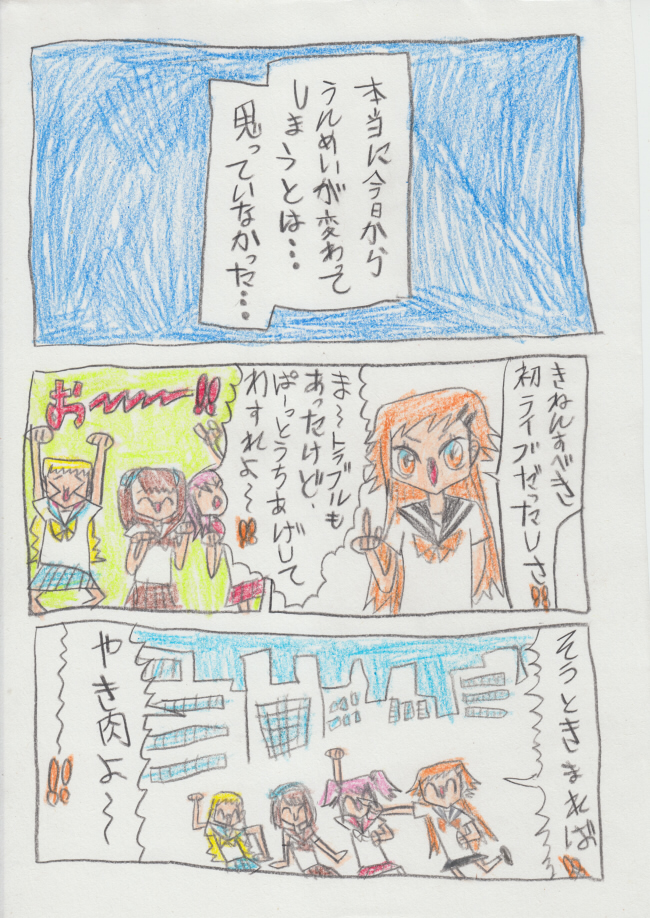 本当に今日から
うんめいが変わって
しまうとは…
思っていなかった…
きねんすべき
初ライブだったしさ!!
ま〜トラブルも
あったけど、
ぱーっとうちあげして
わすれよ〜!!
お〜〜〜!!
そうときまれば!!
やき肉よ〜
〜〜!!